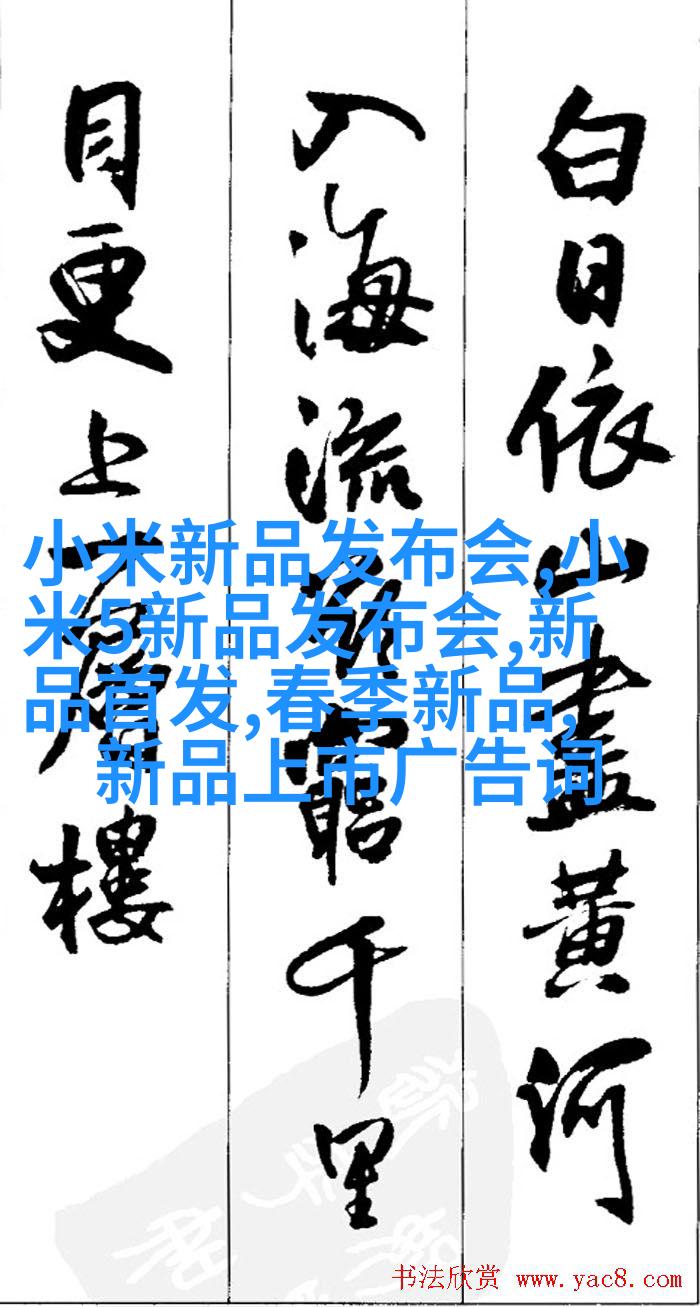 白日依山盡黃河
入海流欲窮千里
目更上一層樓
小米新品发布会,小
米5新品发布会,新
品首发,春季新品,
新品上市广告词
书法欣赏 www.yac8.com